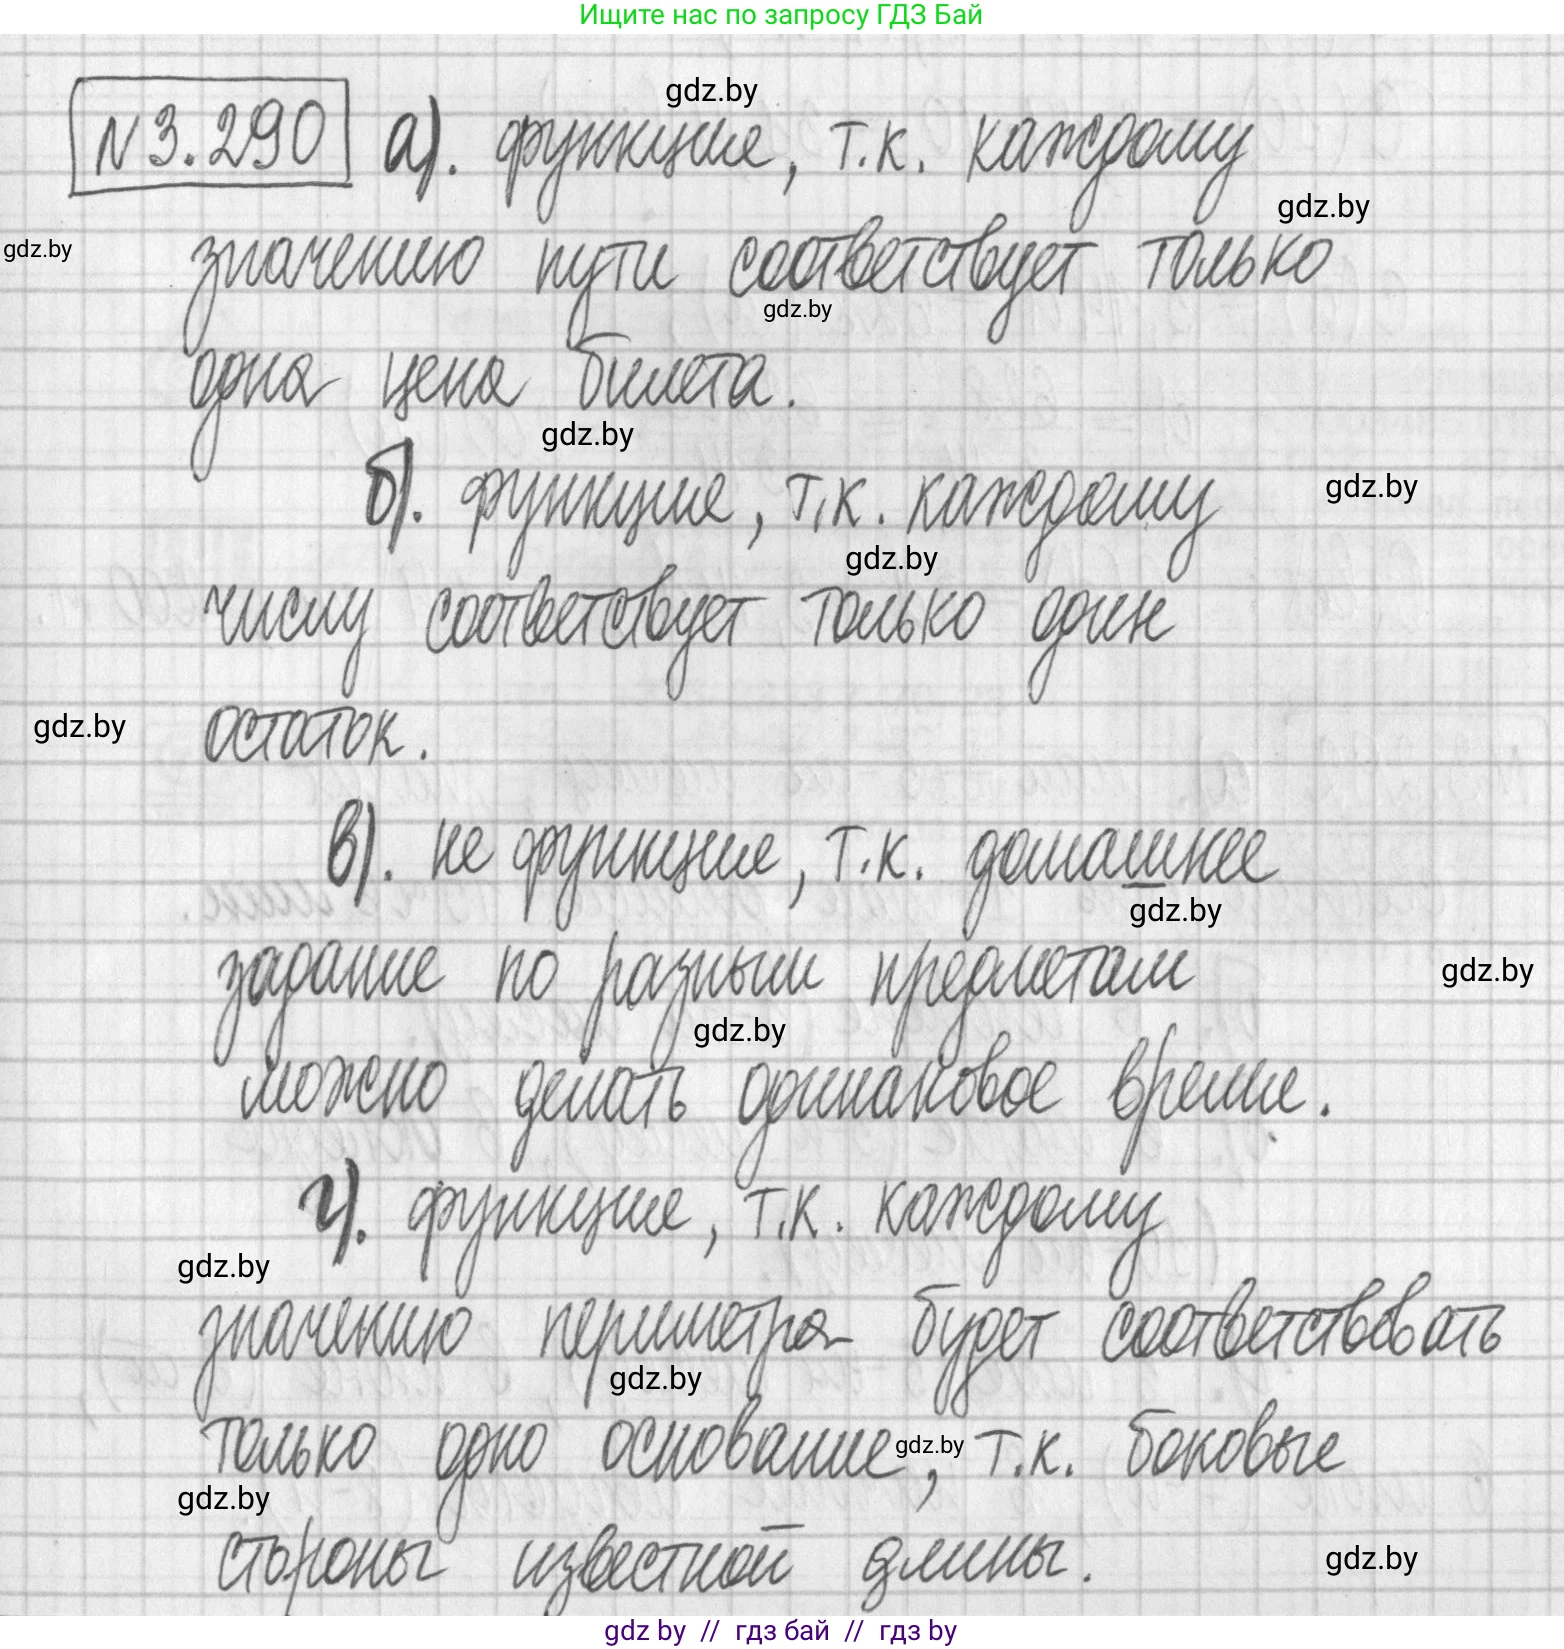 Ищите нас по запросу ГДЗ Бай
gdz.by
№3.290 а). функция, т.к. каждому
gdz.by
gdz.by
значению пути соответствует только
gdz.by
одна цена билета.
gdz.by
б). функция, т.к. каждому
gdz.by
gdz.by
числу соответствует только один
gdz.by
остаток.
в). не функция, т.к. домашнее
gdz.by
задание по разным предметам
gdz.by
gdz.by
можно делать одинаковое время.
г). функция, т.к. каждому
gdz.by
значению периметра будет соответствовать
gdz.by
только одно основание, т.к. боковые
gdz.by
gdz.by
стороны известной длины.
gdz.by
gdz by // гдз бай // гдз by